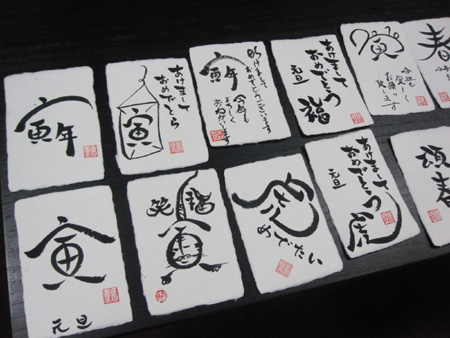 寅年
あけまして
おめでとう
寅
寅年
あけまして
おめでとうございます
今年も
よろしく
お願いします
あけまして
おめでとう
元旦
福
寅
今年も
宜しく
お願い
致します
春
寅
元旦
笑福
寅
めでたい
あけまして
おめでとう
元旦
虎
頌春